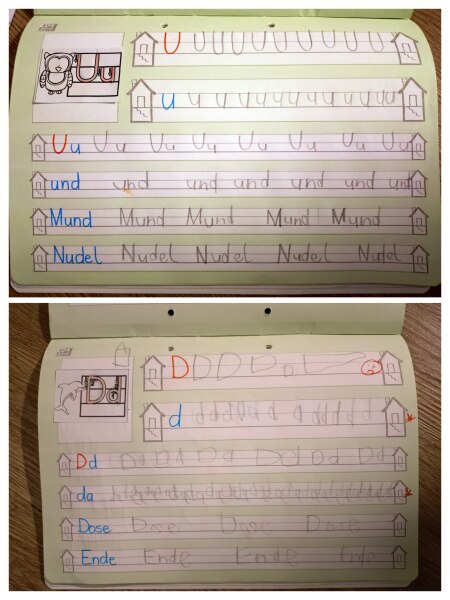 Uu
U U U U U U U U U U
u u u u u u u u u u u u u
Uu Uu Uu Uu Uu Uu Uu Uu
und und und und und und und
Mund Mund Mund Mund Mund
Nudel Nudel Nudel Nudel Nudel
Dd
D D D D D
d d d d d d d d d d d d d
Dd Dd Dd Dd Dd Dd Dd
da
Dose Dose Dose Dose
Ende Ende Ende Ende